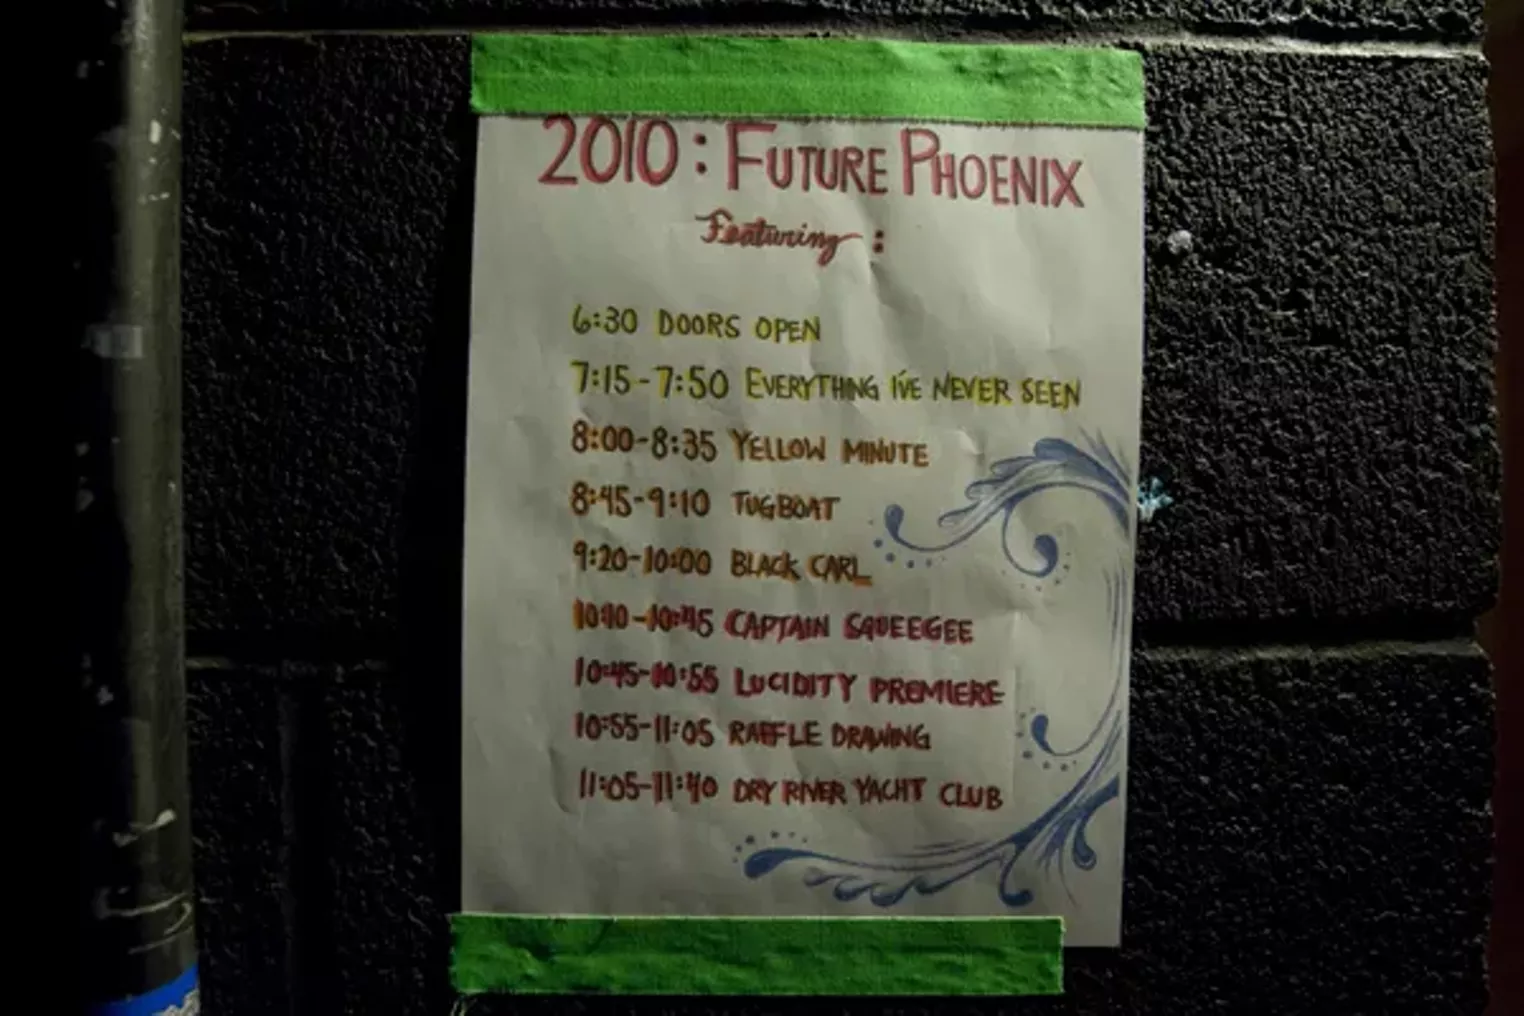 2010: FUTURE PHOENIX
Featuring:
6:30 DOORS OPEN
7:15-7:50 EVERYTHING I'VE NEVER SEEN
8:00-8:35 YELLOW MINUTE
8:45-9:10 TUGBOAT
9:20-10:00 BLACK CARL
10:10-10:45 CAPTAIN SQUEEGEE
10:45-10:55 LUCIDITY PREMIERE
10:55-11:05 RAFFLE DRAWING
11:05-11:40 DRY RIVER YACHT CLUB